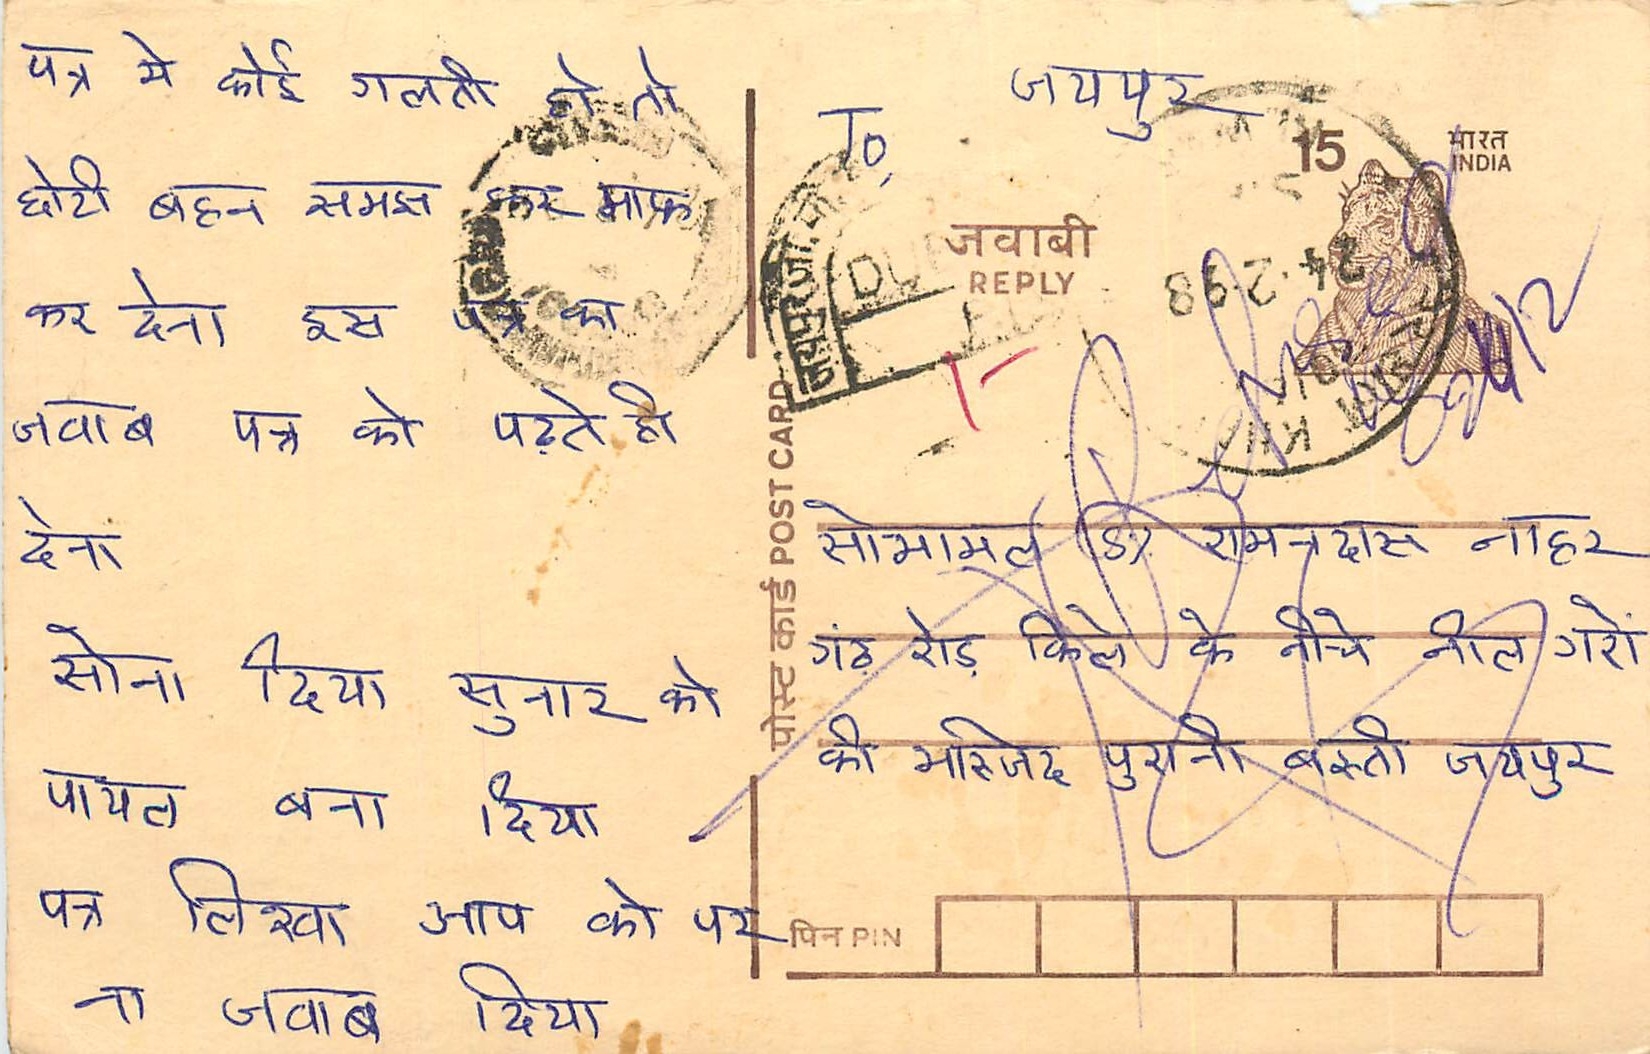 पत्र मे कोई गलती हो तो
छोटी बहन समझ कर माफ
कर देना इस पत्र का
जवाब पत्र को पढ़ते ही
देना
सोना दिया सुनार को
पायल बना दिया
पत्र लिखा आप को पर
ना जवाब दिया
जयपुर
To,
15
भारत
INDIA
जवाबी
REPLY
24.2.98
पोस्ट कार्ड POST CARD
सोभामल रामचन्रदास नाहर
गंढ रोड़ किले के नीचे नील गरों
की मस्जिद पुरानी बस्ती जयपुर
पिन PIN